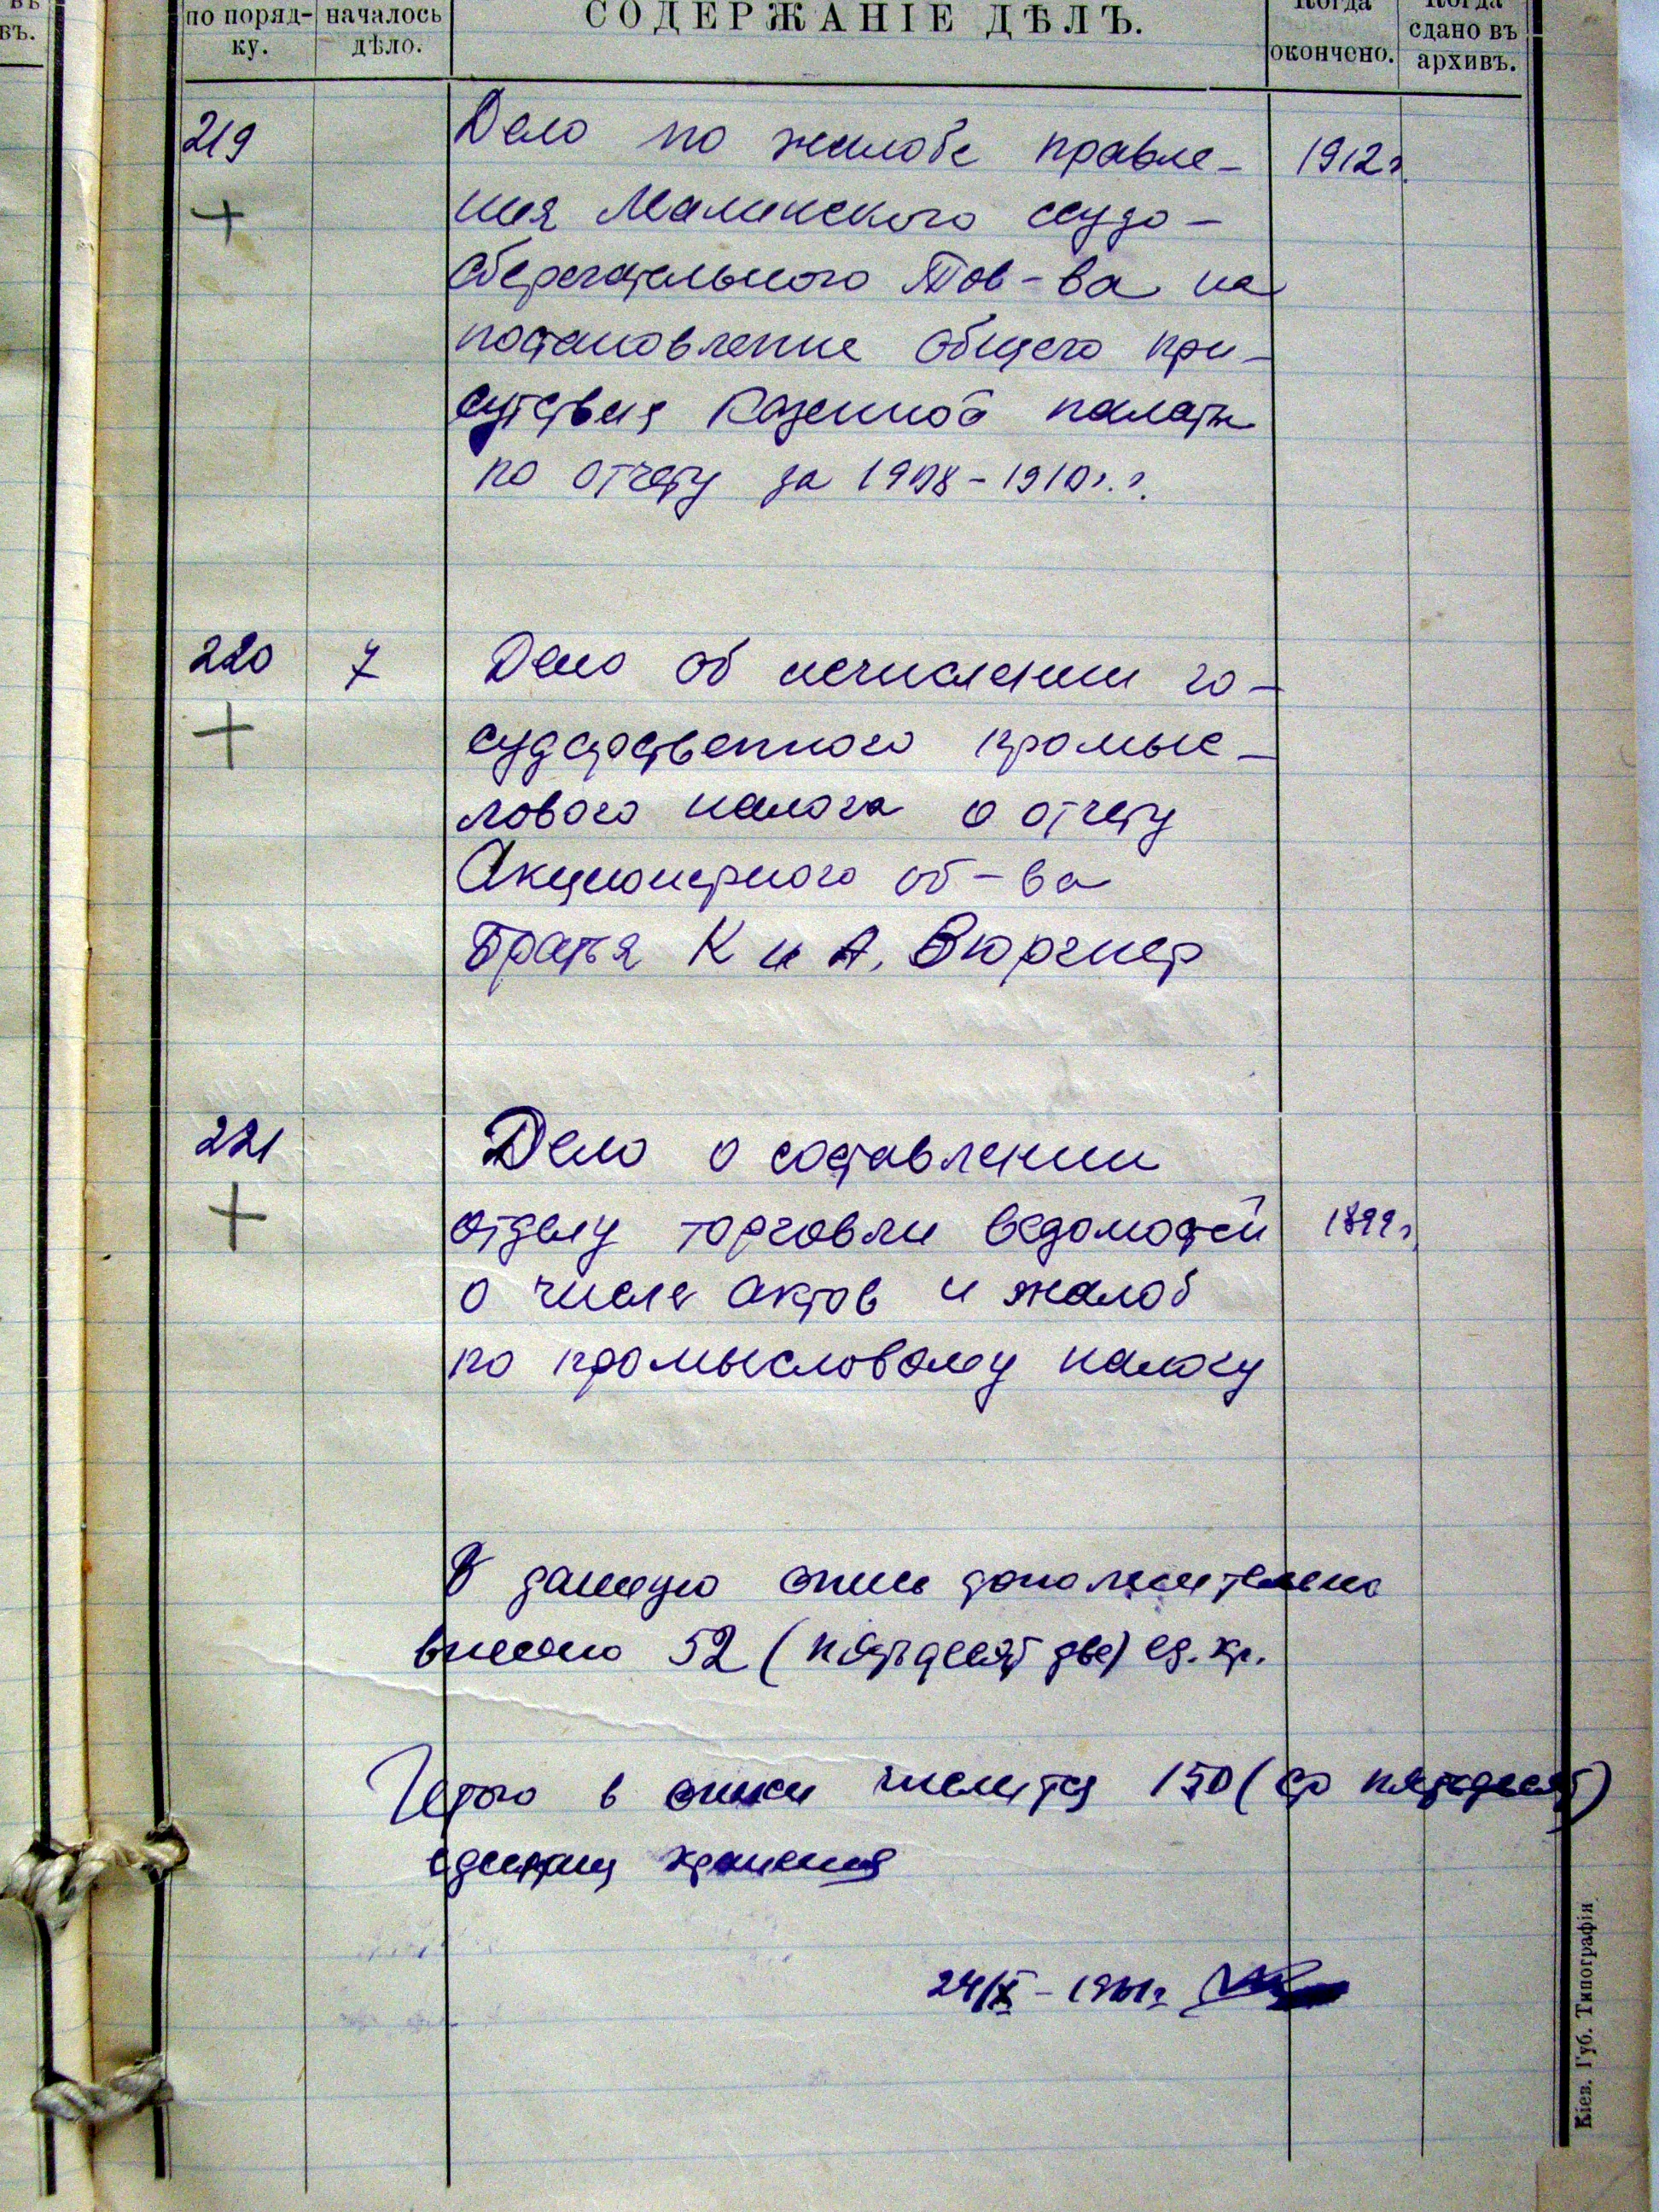 по поряд-
ку.
началось
дѣло.
СОДЕРЖАНІЕ ДѢЛЪ.
Когда
окончено.
Когда
сдано въ
архивъ.
219
Дело по жалобе правле-
1912 г.
+
ния Малинского ссудо-
сберегательного Тов-ва на
постановление общего при-
сутствия Казенной палаты
по отчету за 1908-1910 г.г.
220
7
Дело об исчислении го-
+
сударственного промыс-
лового налога о отчету
Акционерного об-ва
Братья К и А. Вюргнер
221
Дело о составлении
+
отделу торговли ведомостей
1899 г.
о числе актов и жалоб
по промысловому налогу
В данную опись дополнительно
внесено 52 (пятьдесят две) ед. хр.
Итого в описи числится 150 (сто пятьдесят)
единиц хранения
24/X - 1961г.
Кіев. Губ. Типографія